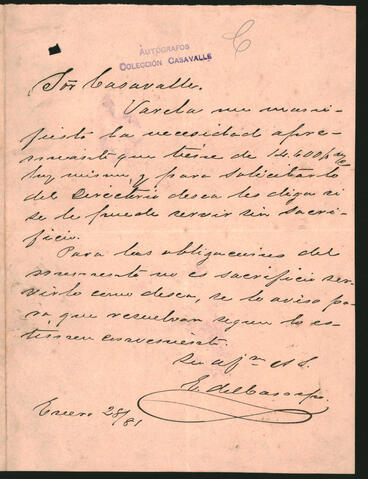 AUTÓGRAFOS
COLECCIÓN CASAVALLE
Sor Casavalle.
Varela me mani-
fiesto la necesidad apre-
miante que tiene de 14.600
hoy mismo, y para solicitarlo
del Directorio desea les diga si
se le puede servir sin sacri-
ficio.
Para las obligaciones del
momento no es sacrificio ser-
virlo como desea, se lo aviso pa-
ra que resuelvan segun lo es-
timen conveniente.
Su
Enero 28/81